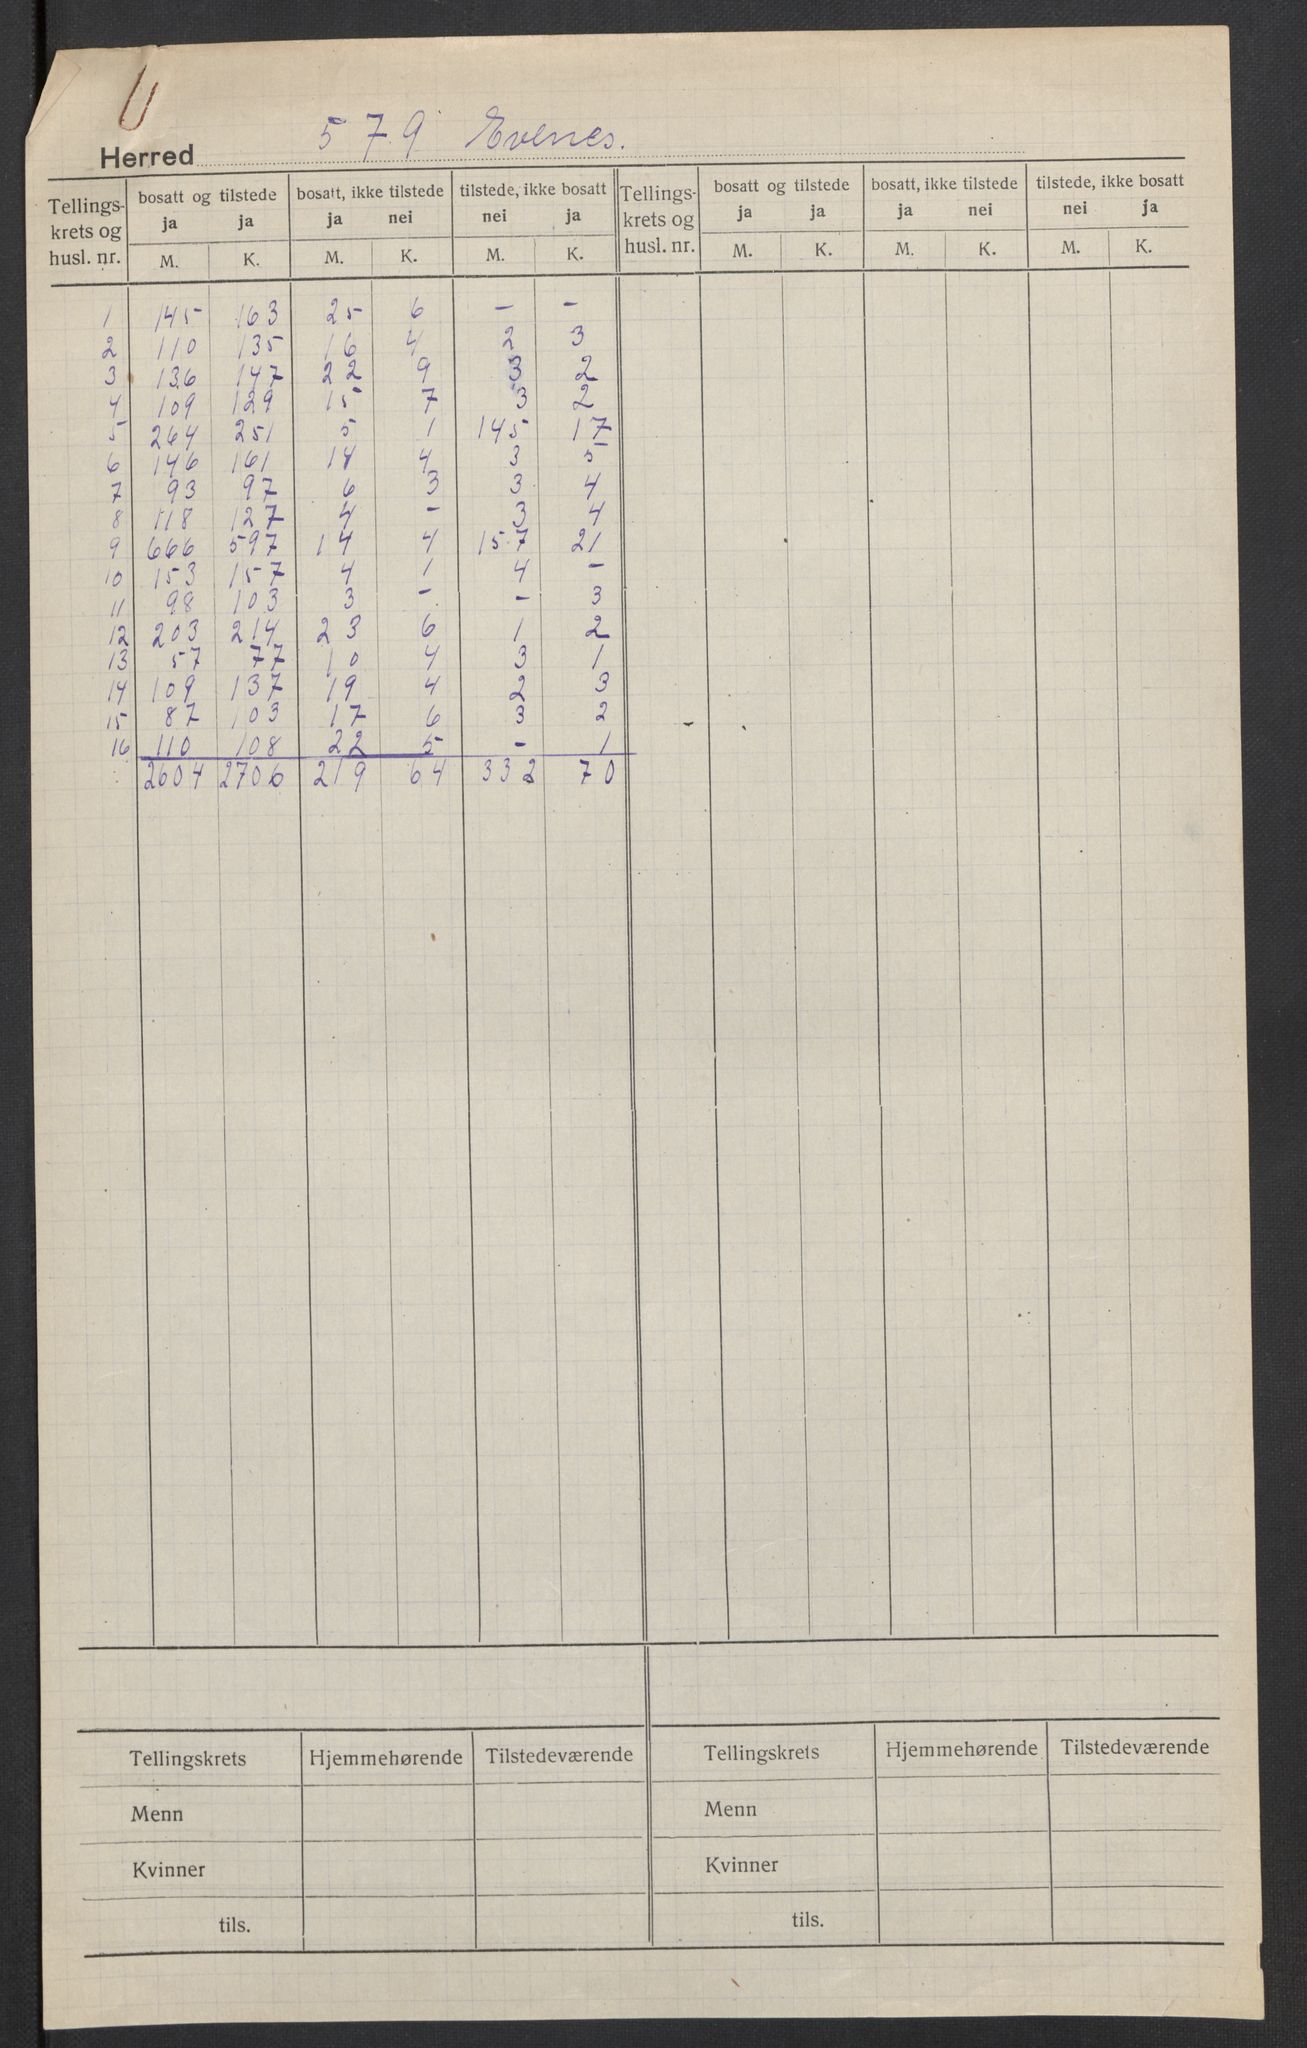 Herred 579 Evenes.
Tellings-krets og husl. nr. | bosatt og tilstede | bosatt, ikke tilstede | tilstede, ikke bosatt | Tellings-krets og husl. nr. | bosatt og tilstede | bosatt, ikke tilstede | tilstede, ikke bosatt
ja ja | ja nei | nei ja | ja ja | ja nei | nei ja
M. K. M. K. M. K. M. K. M. K. M. K.
1 145 163 25 6 – –
2 110 135 16 4 2 3
3 136 147 22 9 3 2
4 109 129 15 7 3 2
5 264 251 5 1 145 17
6 146 161 14 4 3 5
7 93 97 6 3 3 4
8 118 127 4 – 3 4
9 666 597 14 4 157 21
10 153 157 4 1 4 –
11 98 103 3 – – 3
12 203 214 23 6 1 2
13 57 77 10 4 3 1
14 109 137 19 4 2 3
15 87 103 17 6 3 2
16 110 108 22 5 – 1
2604 2706 219 64 332 70
Tellingskrets Hjemmehørende Tilstedeværende Tellingskrets Hjemmehørende Tilstedeværende
Menn Menn
Kvinner Kvinner
tils. tils.